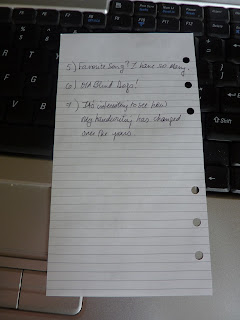 5) Favourite Song? I have so many.
6) Blind Dogs!
7) It's interesting to see how
my handwriting has changed
over the years